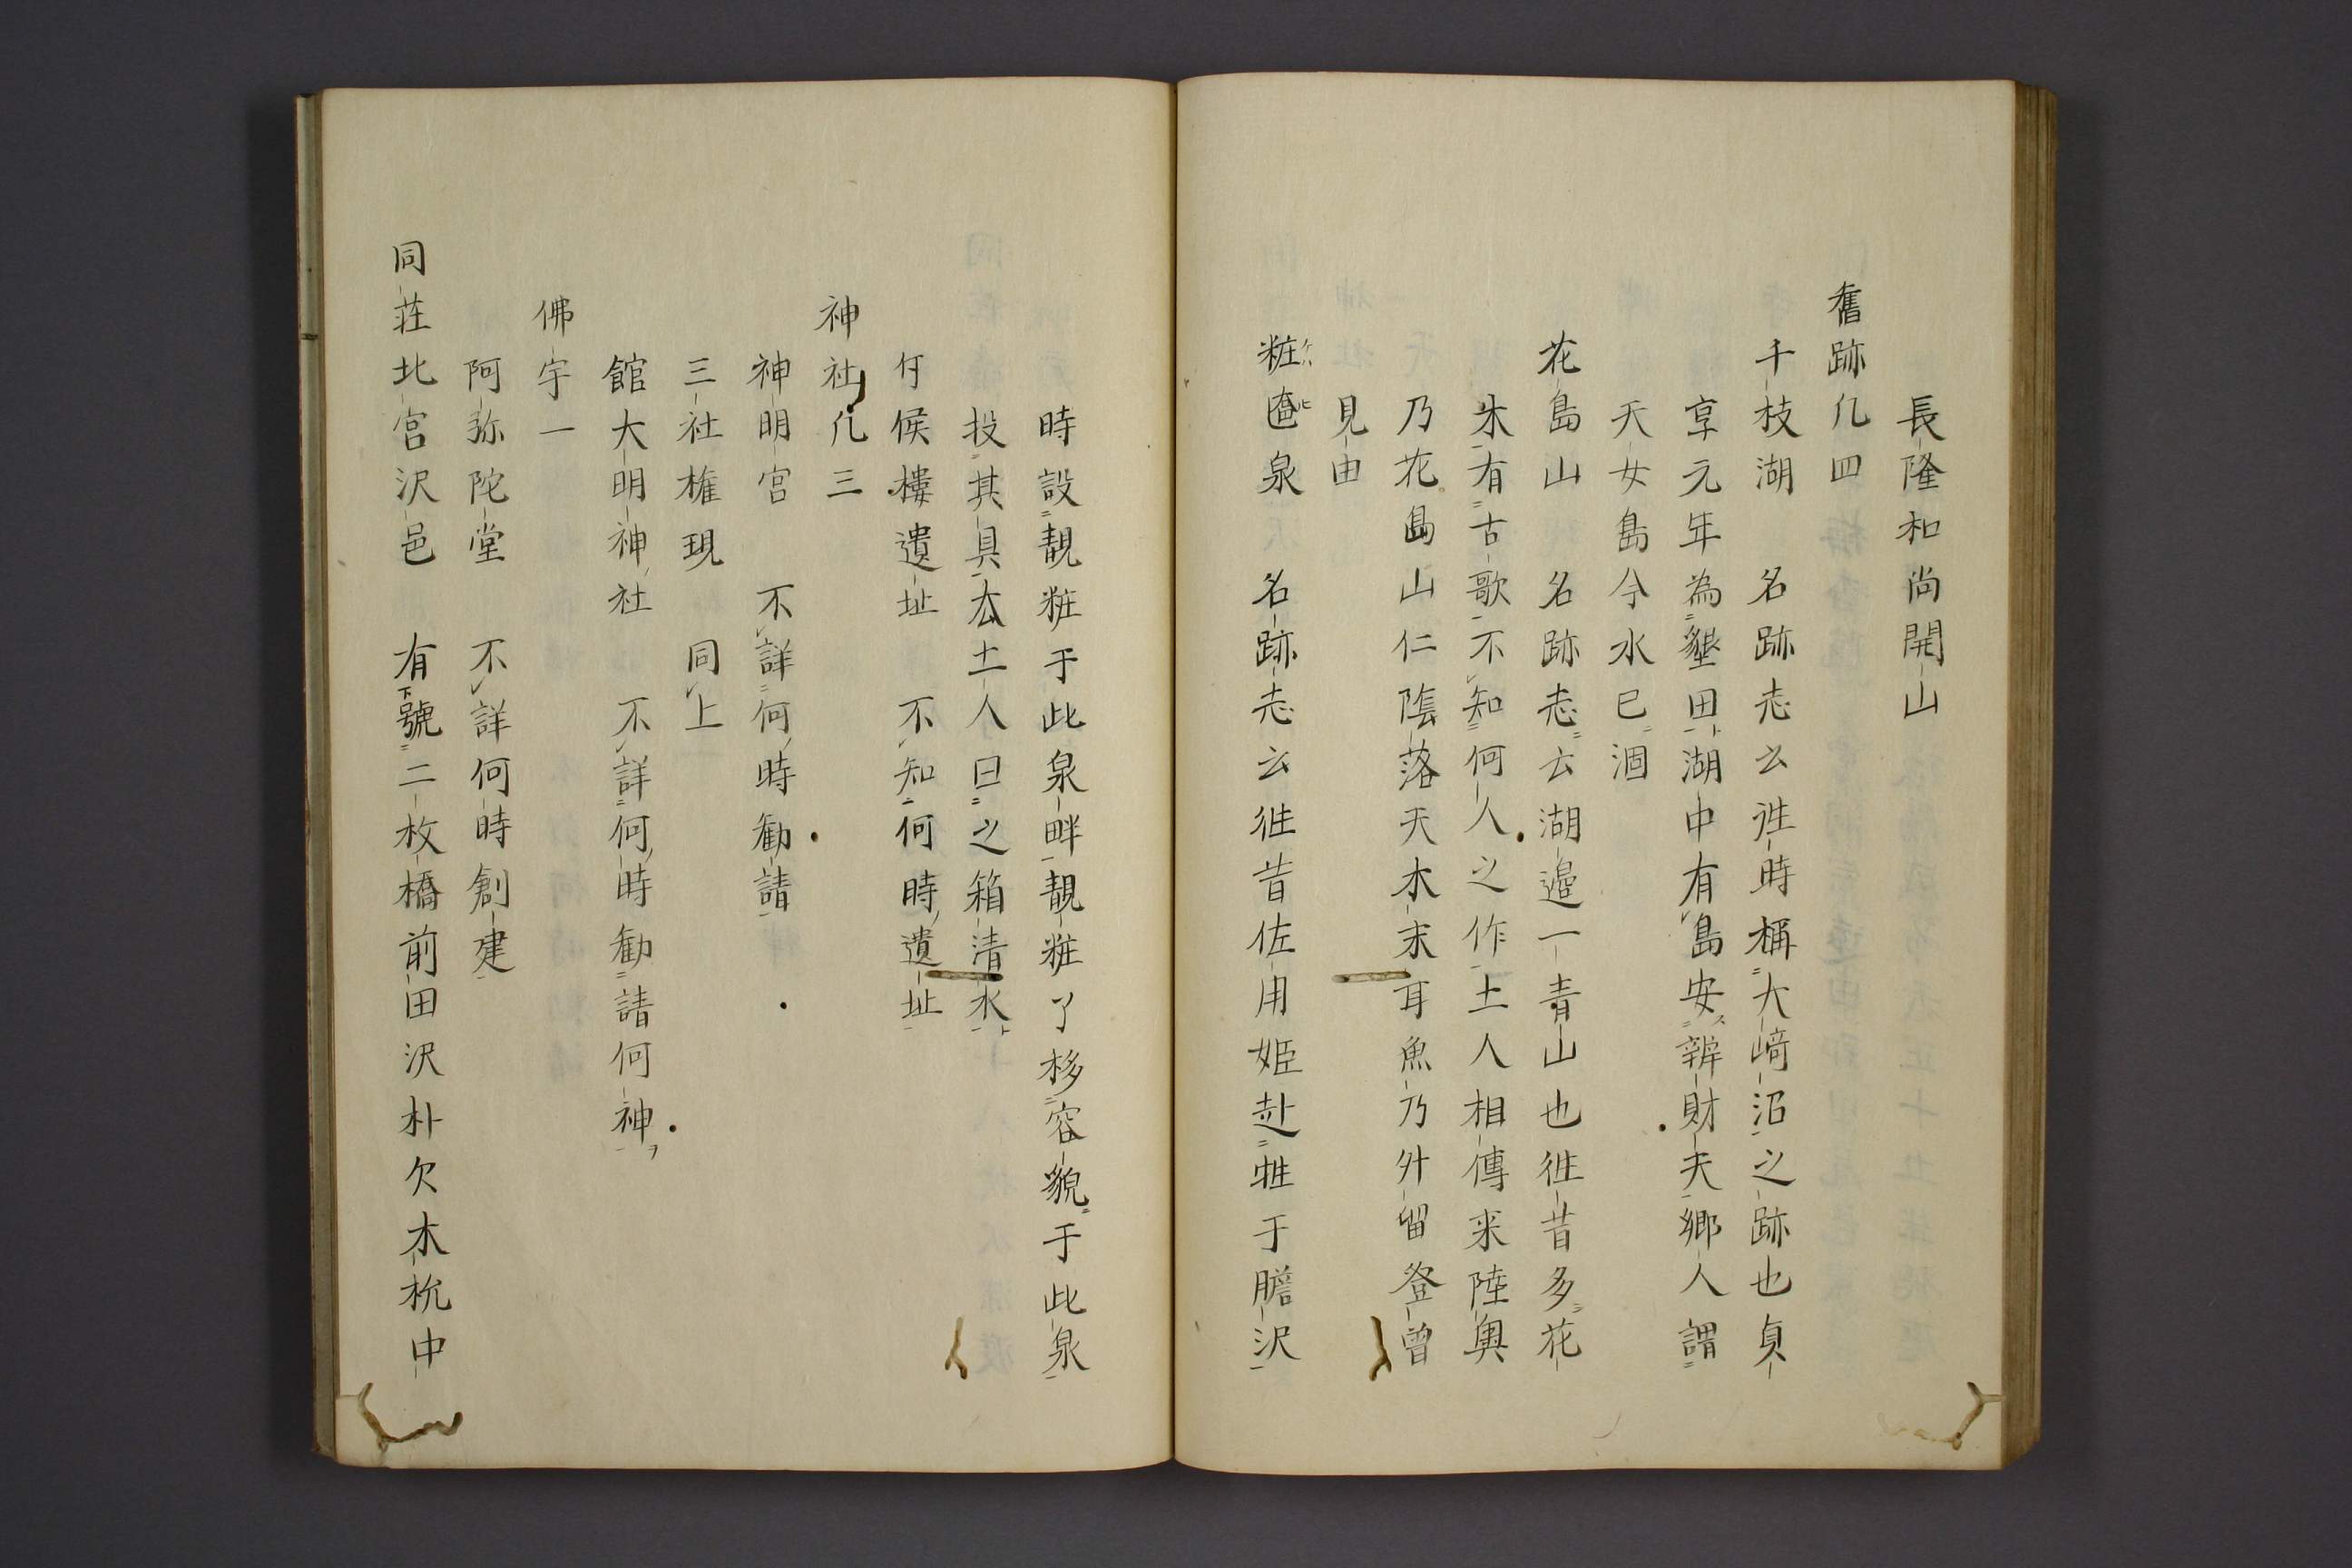 長隆和尚開山
舊跡凢四
千枝湖　名跡志云徃時稱大﨑沼之跡也貞
享元年為墾田湖中有島安辨財夫郷人謂
天女島今水已涸
花島山　名跡志云湖邉一青山也徃昔多花
木有古歌不知何人之作土人相傳来陸奥
乃花島山仁隂落天木末耳魚乃外留登曽
見由
粧匳泉　名跡志云徃昔佐用姫赴牲于膽沢
時設靚粧于此泉畔靚粧了移容貌于此泉
投其具厺土人曰之箱清水
仔候樓遺址　不知何時遺址
神社凢三
神明宮　不詳何時勧請
三社権現　同上
館大明神社　不詳何時勧請何神
佛宇一
阿弥陀堂　不詳何時創建
同荘北宮沢邑　有號二枚橋前田沢朴欠木杭中